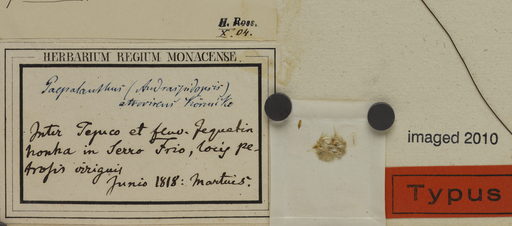 H. Ross.
X. 04.
HERBARIUM REGIUM MONACENSE.
Paepalanthus (Andraspidopsis)
atrovirens Körnicke
Inter Tejuco et fluv. Jequetin
honha in Serro Frio, locis pe-
trosis viriguis
Junio 1818: Martius.
imaged 2010
Typus